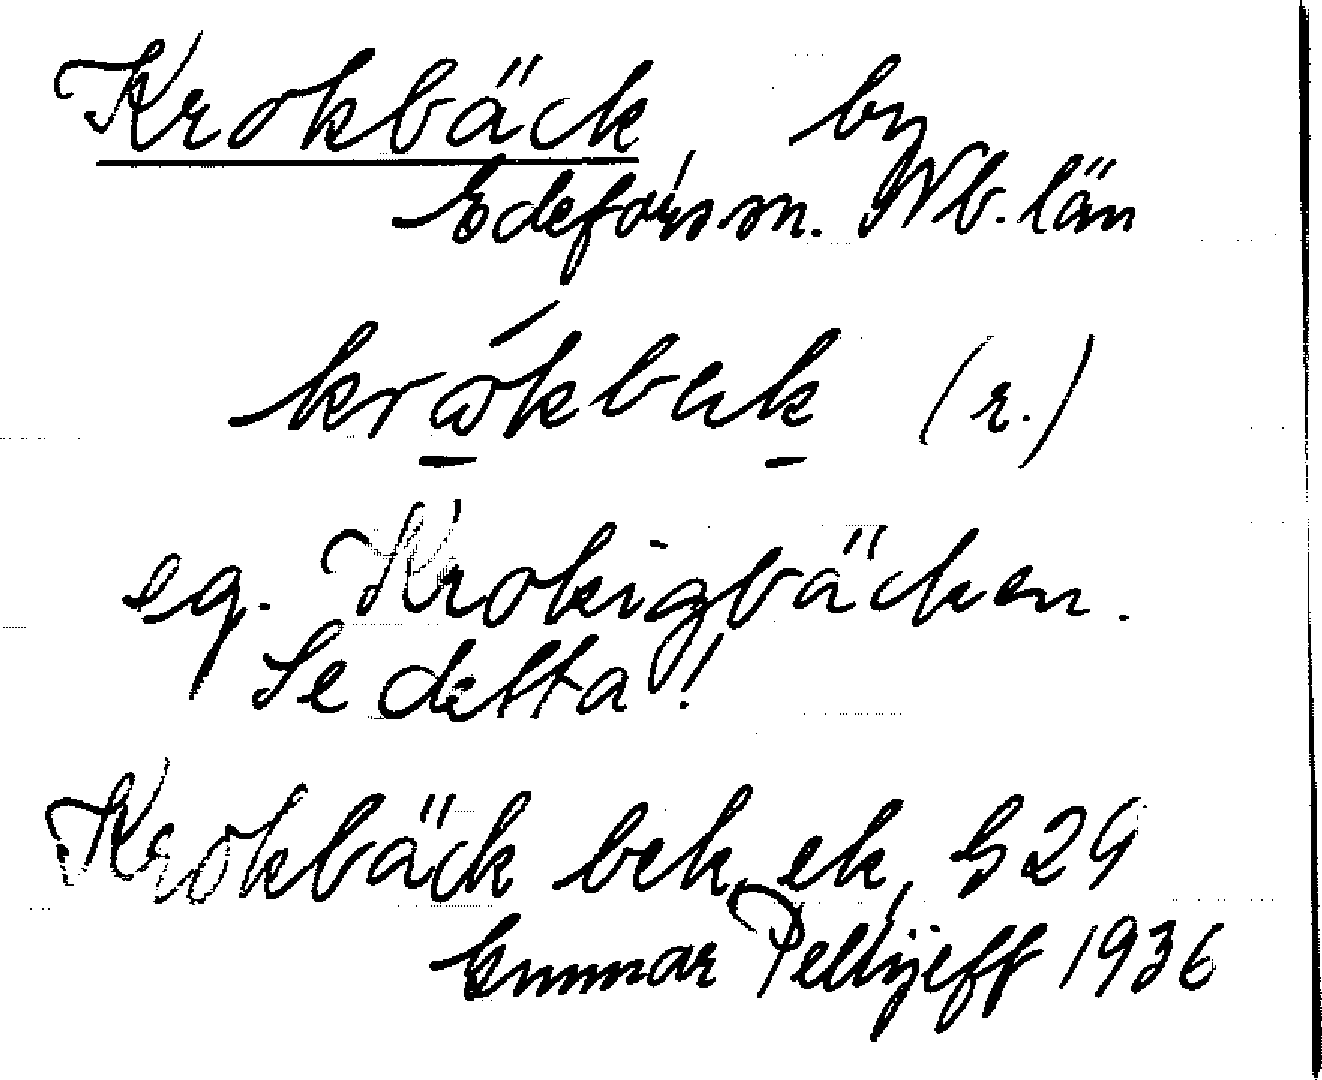 Krokbäck, by
Edefors sn. Nb. län
krωkbek (r.)
eg. Krokigbäcken.
Se detta!
Krokbäck bek, ek, S29
Gunnar Pellijeff 1936